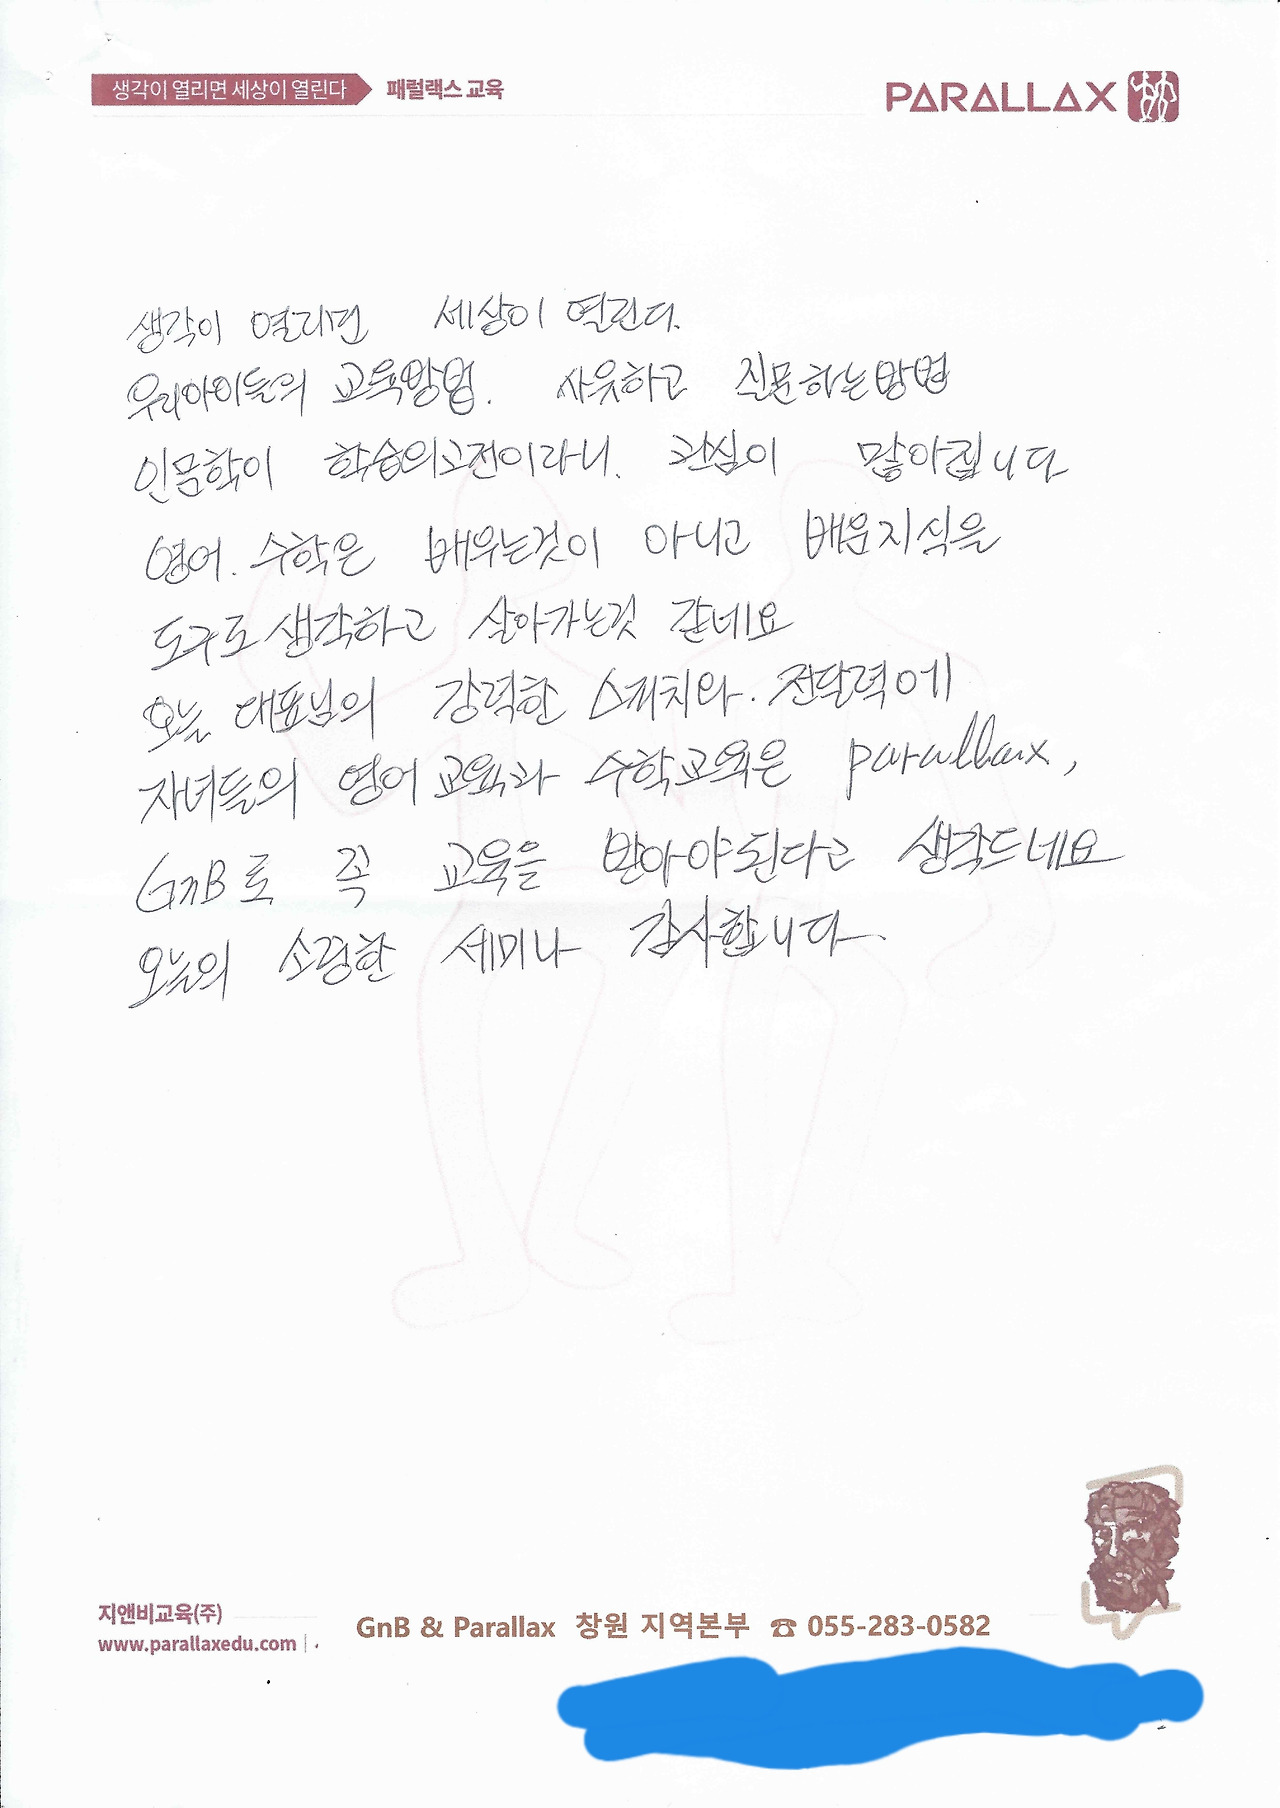 생각이 열리면 세상이 열린다 패럴랙스 교육 PARALLAX
생각이 열리면 세상이 열린다.
우리아이들의 교육방법. 사유하고 질문하는방법
인문학이 학습의고전이라니. 관심이 많아집니다
영어. 수학은 배우는것이 아니고 배운지식을
도구로 생각하고 살아가는것 같네요
오늘 대표님의 강력한 스피치와. 전달력에
자녀들의 영어교육과 수학교육은 parallax,
GnB로 꼭 교육을 받아야된다고 생각드네요
오늘의 소중한 세미나 감사합니다.
지앤비교육(주)
www.parallaxedu.com
GnB & Parallax 창원 지역본부 ☎ 055-283-0582